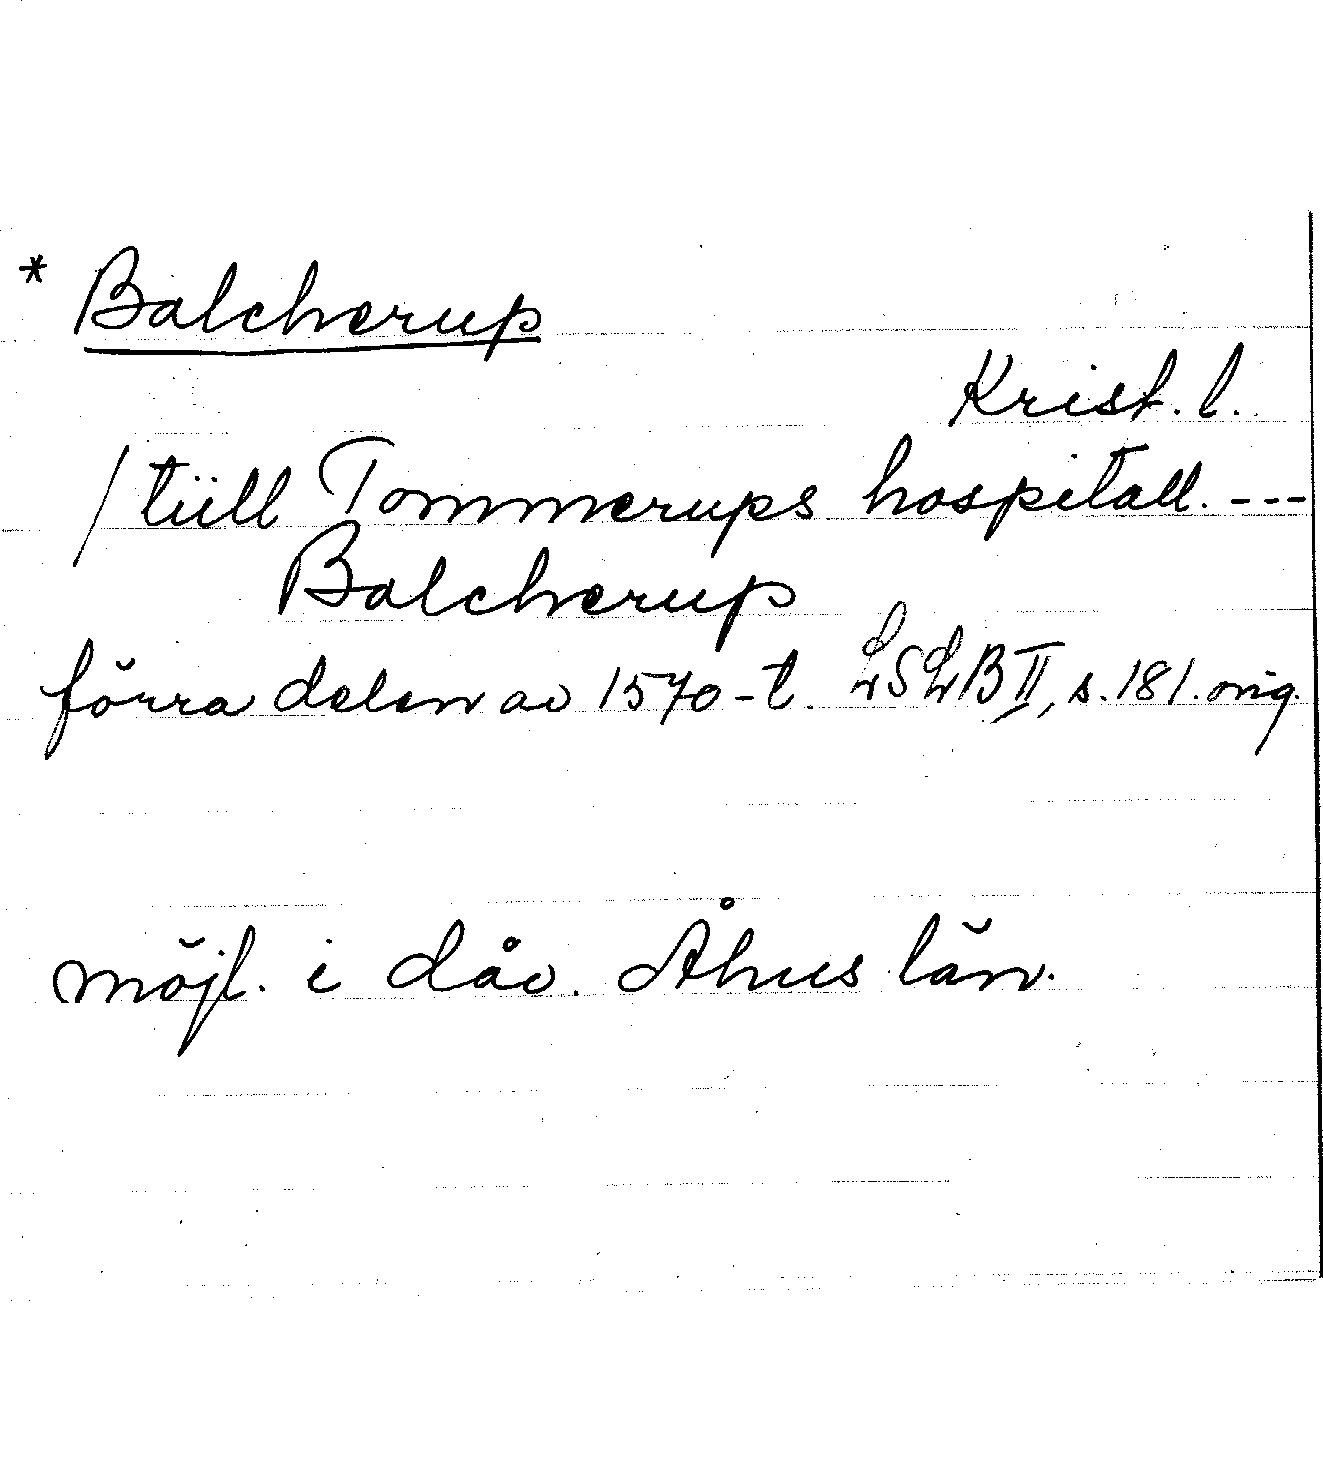 * Balcherup
Krist. l.
/ tiill Tommerups hospitall. ---
Balcherup
förra delen av 1570-t. LSLB II, s. 181. orig.
möjl. i dåv. Åhus län.